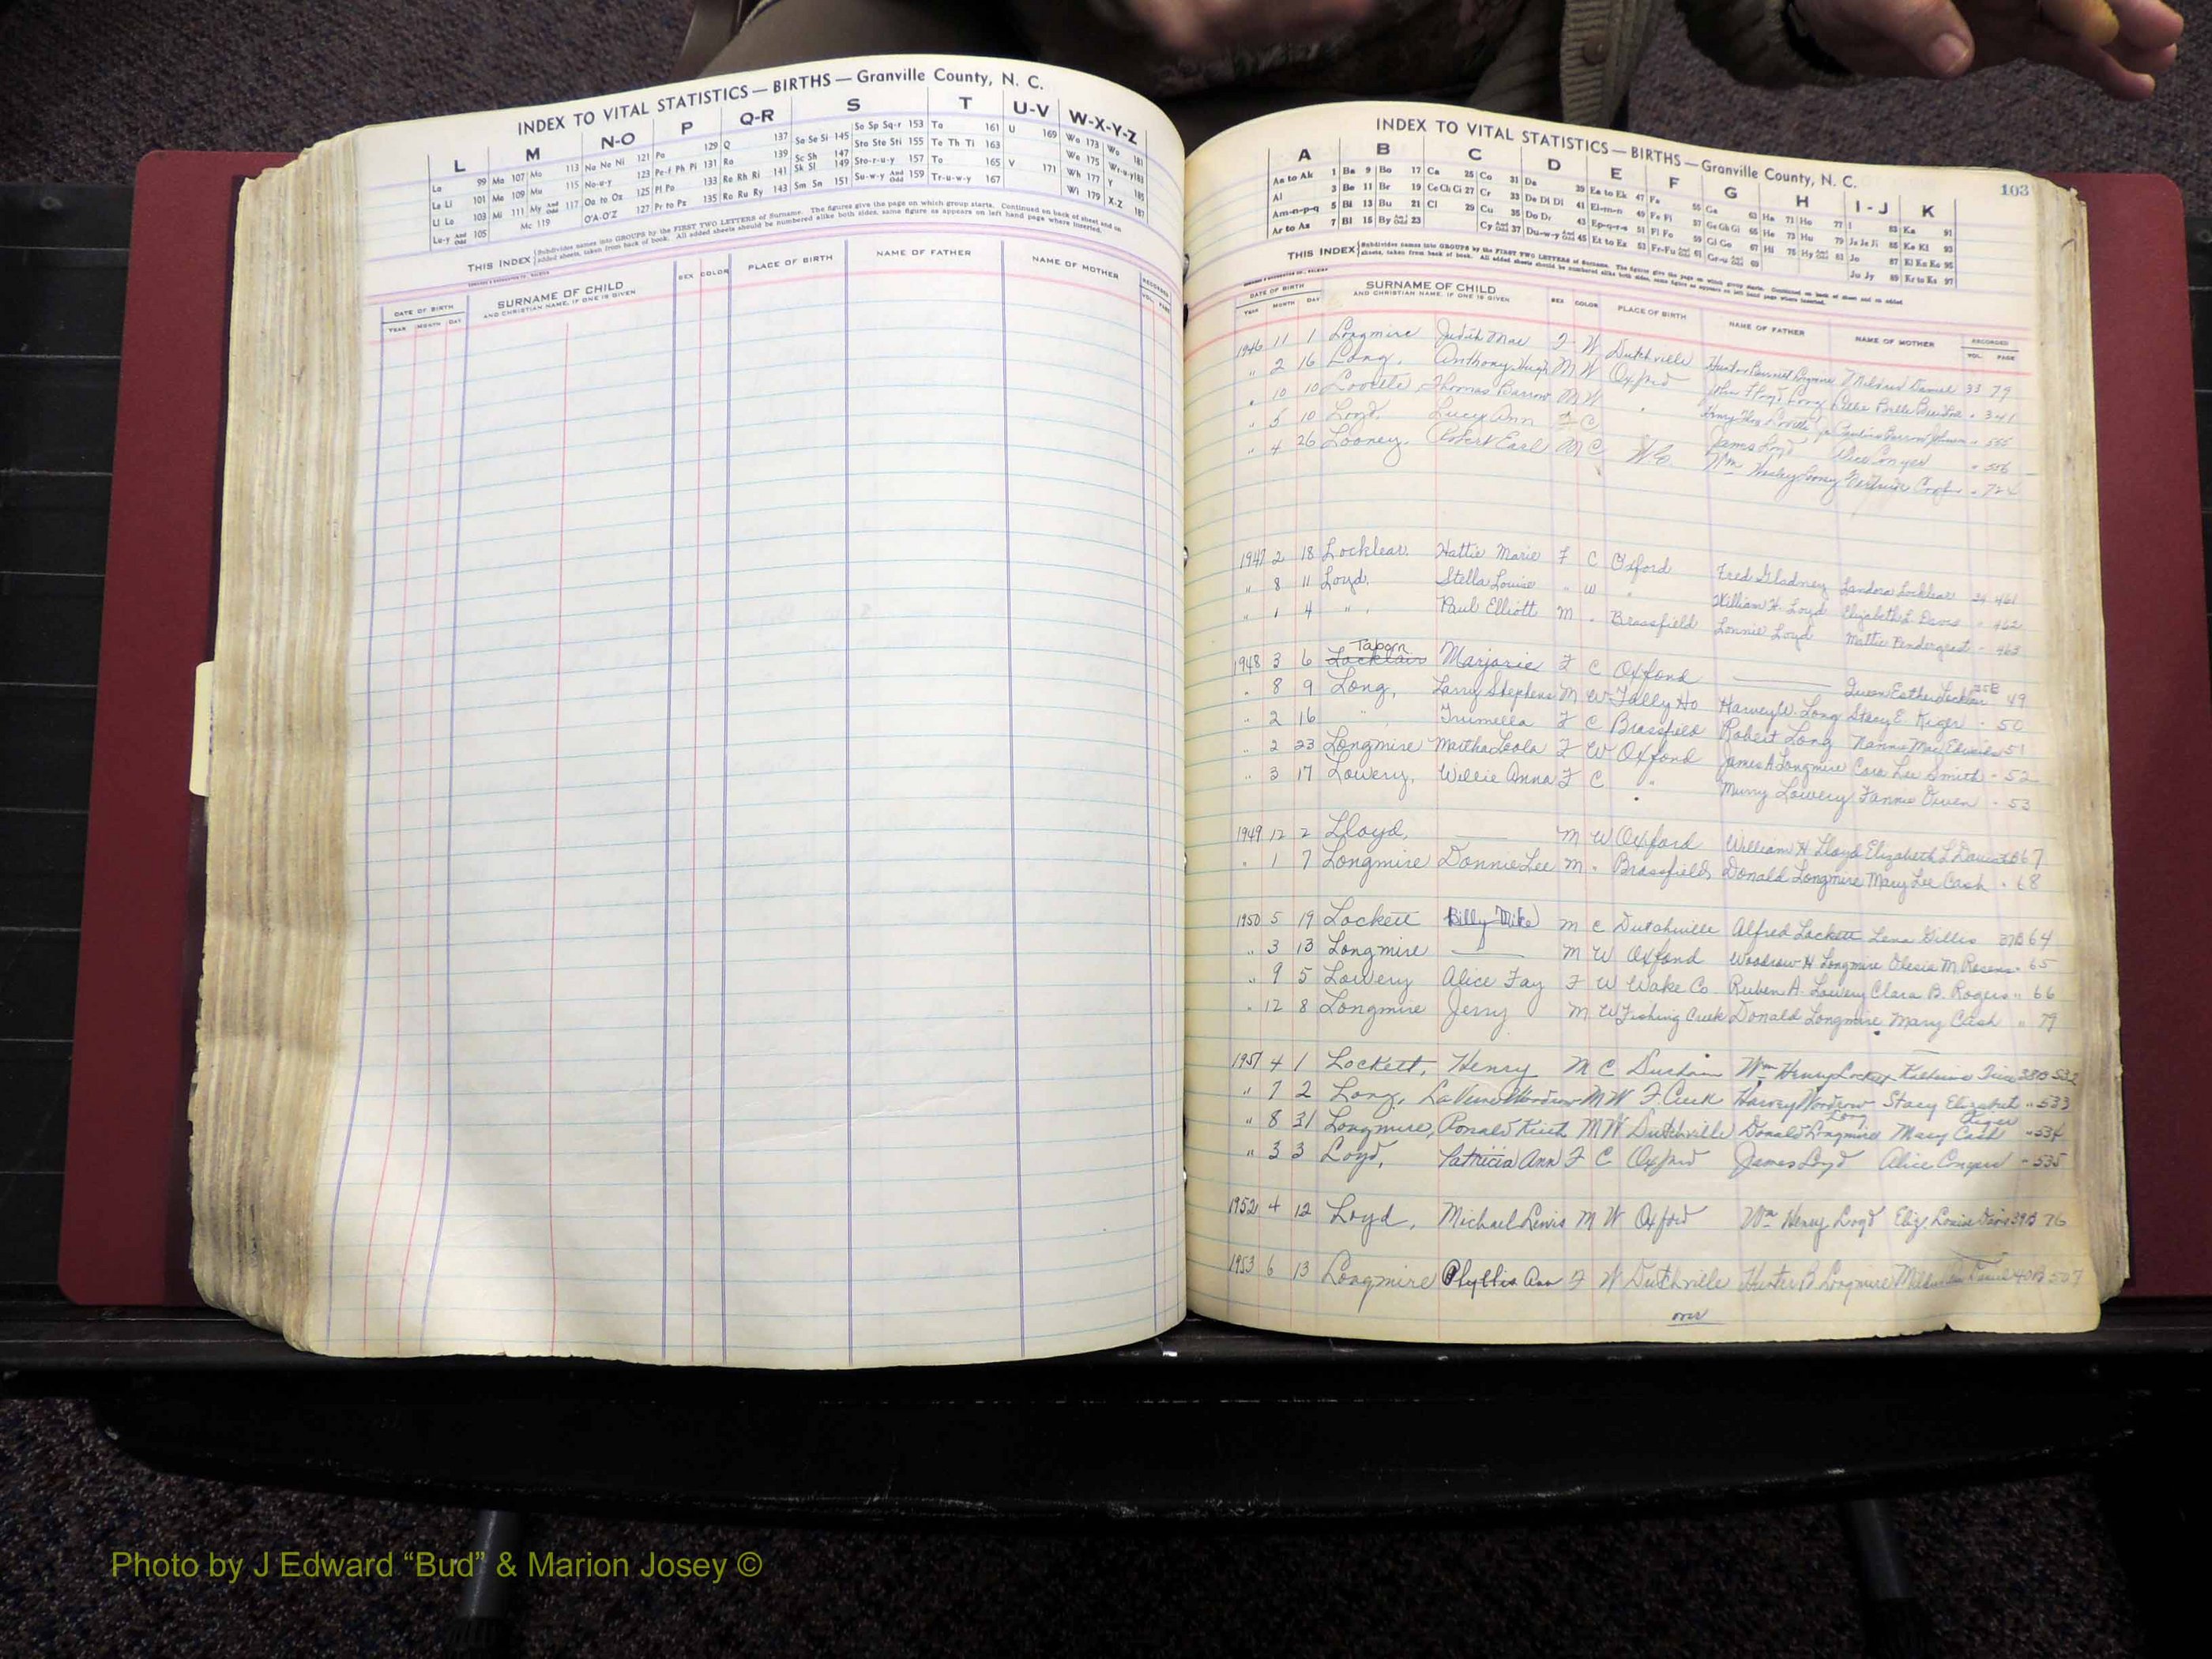 INDEX TO VITAL STATISTICS — BIRTHS — Granville County, N. C.
L M N-O P Q-R S T U-V W-X-Y-Z
La 99 Ma 107 Mo 113 Na Ne Ni 121 Pa 129 Q 137 Sa Se Si 145 So Sp Sq-r 153 Ta 161 U 169 Wa 173 Wo 181
Le Li 101 Me 109 Mu 115 No-u-y 123 Pe-f Ph Pi 131 Ra 139 Sc Sh 147 Sta Ste Sti 155 Te Th Ti 163 We 175 Wr-u-y 183
Ll Lo 103 Mi 111 My And Odd 117 Oa to Oz 125 Pl Po 133 Re Rh Ri 141 Sk Sl 149 Sto-r-u-y 157 To 165 V 171 Wh 177 Y 185
Lu-y And Odd 105 Mc 119 O'A-O'Z 127 Pr to Pz 135 Ro Ru Ry 143 Sm Sn 151 Su-w-y And Odd 159 Tr-u-w-y 167 Wi 179 X-Z 187
THIS INDEX Subdivides names into GROUPS by the FIRST TWO LETTERS of Surname. The figures give the page on which group starts. Continued on back of sheet and on
added sheets, taken from back of book. All added sheets should be numbered alike both sides, same figure as appears on left hand page where inserted.
DATE OF BIRTH SURNAME OF CHILD SEX COLOR PLACE OF BIRTH NAME OF FATHER NAME OF MOTHER RECORDED
YEAR MONTH DAY AND CHRISTIAN NAME, IF ONE IS GIVEN VOL. PAGE
INDEX TO VITAL STATISTICS — BIRTHS — Granville County, N. C.
103
A B C D E F G H I - J K
Aa to Ak 1 Ba 9 Bo 17 Ca 25 Co 31 Da 39 Ea to Ek 47 Fa 55 Ga 63 Ha 71 Ho 77 I 83 Ka 91
Al 3 Be 11 Br 19 Ce Ch Ci 27 Cr 33 De Di Dl 41 El-m-n 49 Fe Fi 57 Ge Gh Gi 65 He 73 Hu 79 Ja Je Ji 85 Ke Kl 93
Am-n-p-q 5 Bi 13 Bu 21 Cl 29 Cu 35 Do Dr 43 Ep-q-r-s 51 Fl Fo 59 Gl Go 67 Hi 75 Hy And Odd 81 Jo 87 Kl Kn Ko 95
Ar to Az 7 Bl 15 By And Odd 23 Cy And Odd 37 Du-w-y And Odd 45 Et to Ez 53 Fr-Fu And Odd 61 Gr-u And Odd 69 Ju Jy 89 Kr to Kz 97
THIS INDEX Subdivides names into GROUPS by the FIRST TWO LETTERS of Surname. The figures give the page on which group starts. Continued on back of sheet and on added
sheets, taken from back of book. All added sheets should be numbered alike both sides, same figure as appears on left hand page where inserted.
DATE OF BIRTH SURNAME OF CHILD SEX COLOR PLACE OF BIRTH NAME OF FATHER NAME OF MOTHER RECORDED
YEAR MONTH DAY AND CHRISTIAN NAME, IF ONE IS GIVEN VOL. PAGE
1946 11 1 Longmire Judith Mae F W Dutchville Mildred Daniel 33 79
" 2 16 Long, Anthony Hugh M W Oxford John Floyd Long 341
" 10 10 Lovette, Thomas Barrow M W "
" 5 10 Loyd, Lucy Ann F C James Loyd Alice Conyer " 506
" 4 26 Looney, Robert Earl M C Wm Wesley Looney
1947 2 18 Locklear Hattie Marie F C Oxford Fred Gladney Landora Locklear 34 461
" 8 11 Loyd, Stella Louise " W " William H. Loyd Elizabeth L. Davis " 462
" 1 4 " Paul Elliott M " Brassfield Lonnie Loyd Mattie Pendergrast - 463
Taborn
1948 3 6 Locklair Marjorie F C Oxford —— Queen Esther Locklair 35B 49
" 8 9 Long, Larry Stephens M W Tally Ho Harvey W. Long Stacy E. Kiger - 50
" 2 16 " Trumella F C Brassfield Robert Long Nannie Mae 51
" 2 23 Longmire Martha Leola F W Oxford James A Longmire Cora Lee Smith - 52
" 3 17 Lowery, Willie Anna F C " Murry Lowery Fannie Owen - 53
1949 12 2 Lloyd, —— M W Oxford William H. Lloyd Elizabeth L Davis 67
" 1 7 Longmire Donnie Lee M " Brassfield Donald Longmire Mary Lee Cash " 68
1950 5 19 Lockett Billy Mike M C Dutchville Alfred Lockett Lena Gillis 37B 64
" 3 13 Longmire —— M W Oxford Woodrow H Longmire 65
" 9 5 Lowery Alice Fay F W Wake Co. Ruben A. Lowery Clara B. Rogers " 66
" 12 8 Longmire Jerry M W Fishing Creek Donald Longmire Mary Cash " 79
1951 4 1 Lockett, Henry M C Durham Wm Henry Lockett 38B 532
" 7 2 Long, M W F. Creek Harvey Woodrow Long Stacy Elizabeth Kiger " 533
" 8 31 Longmire, Ronald Keith M W Dutchville Donald Longmire Mary Cash " 534
" 3 3 Loyd, Patricia Ann F C Oxford James Loyd Alice Conyers - 535
1952 4 12 Loyd, Michael Lewis M W Oxford Wm Henry Loyd Eliz. Louise Davis 39B 76
1953 6 13 Longmire Phyllis Ann F W Dutchville Hunter B Longmire 40B 507
over
Photo by J Edward “Bud” & Marion Josey ©